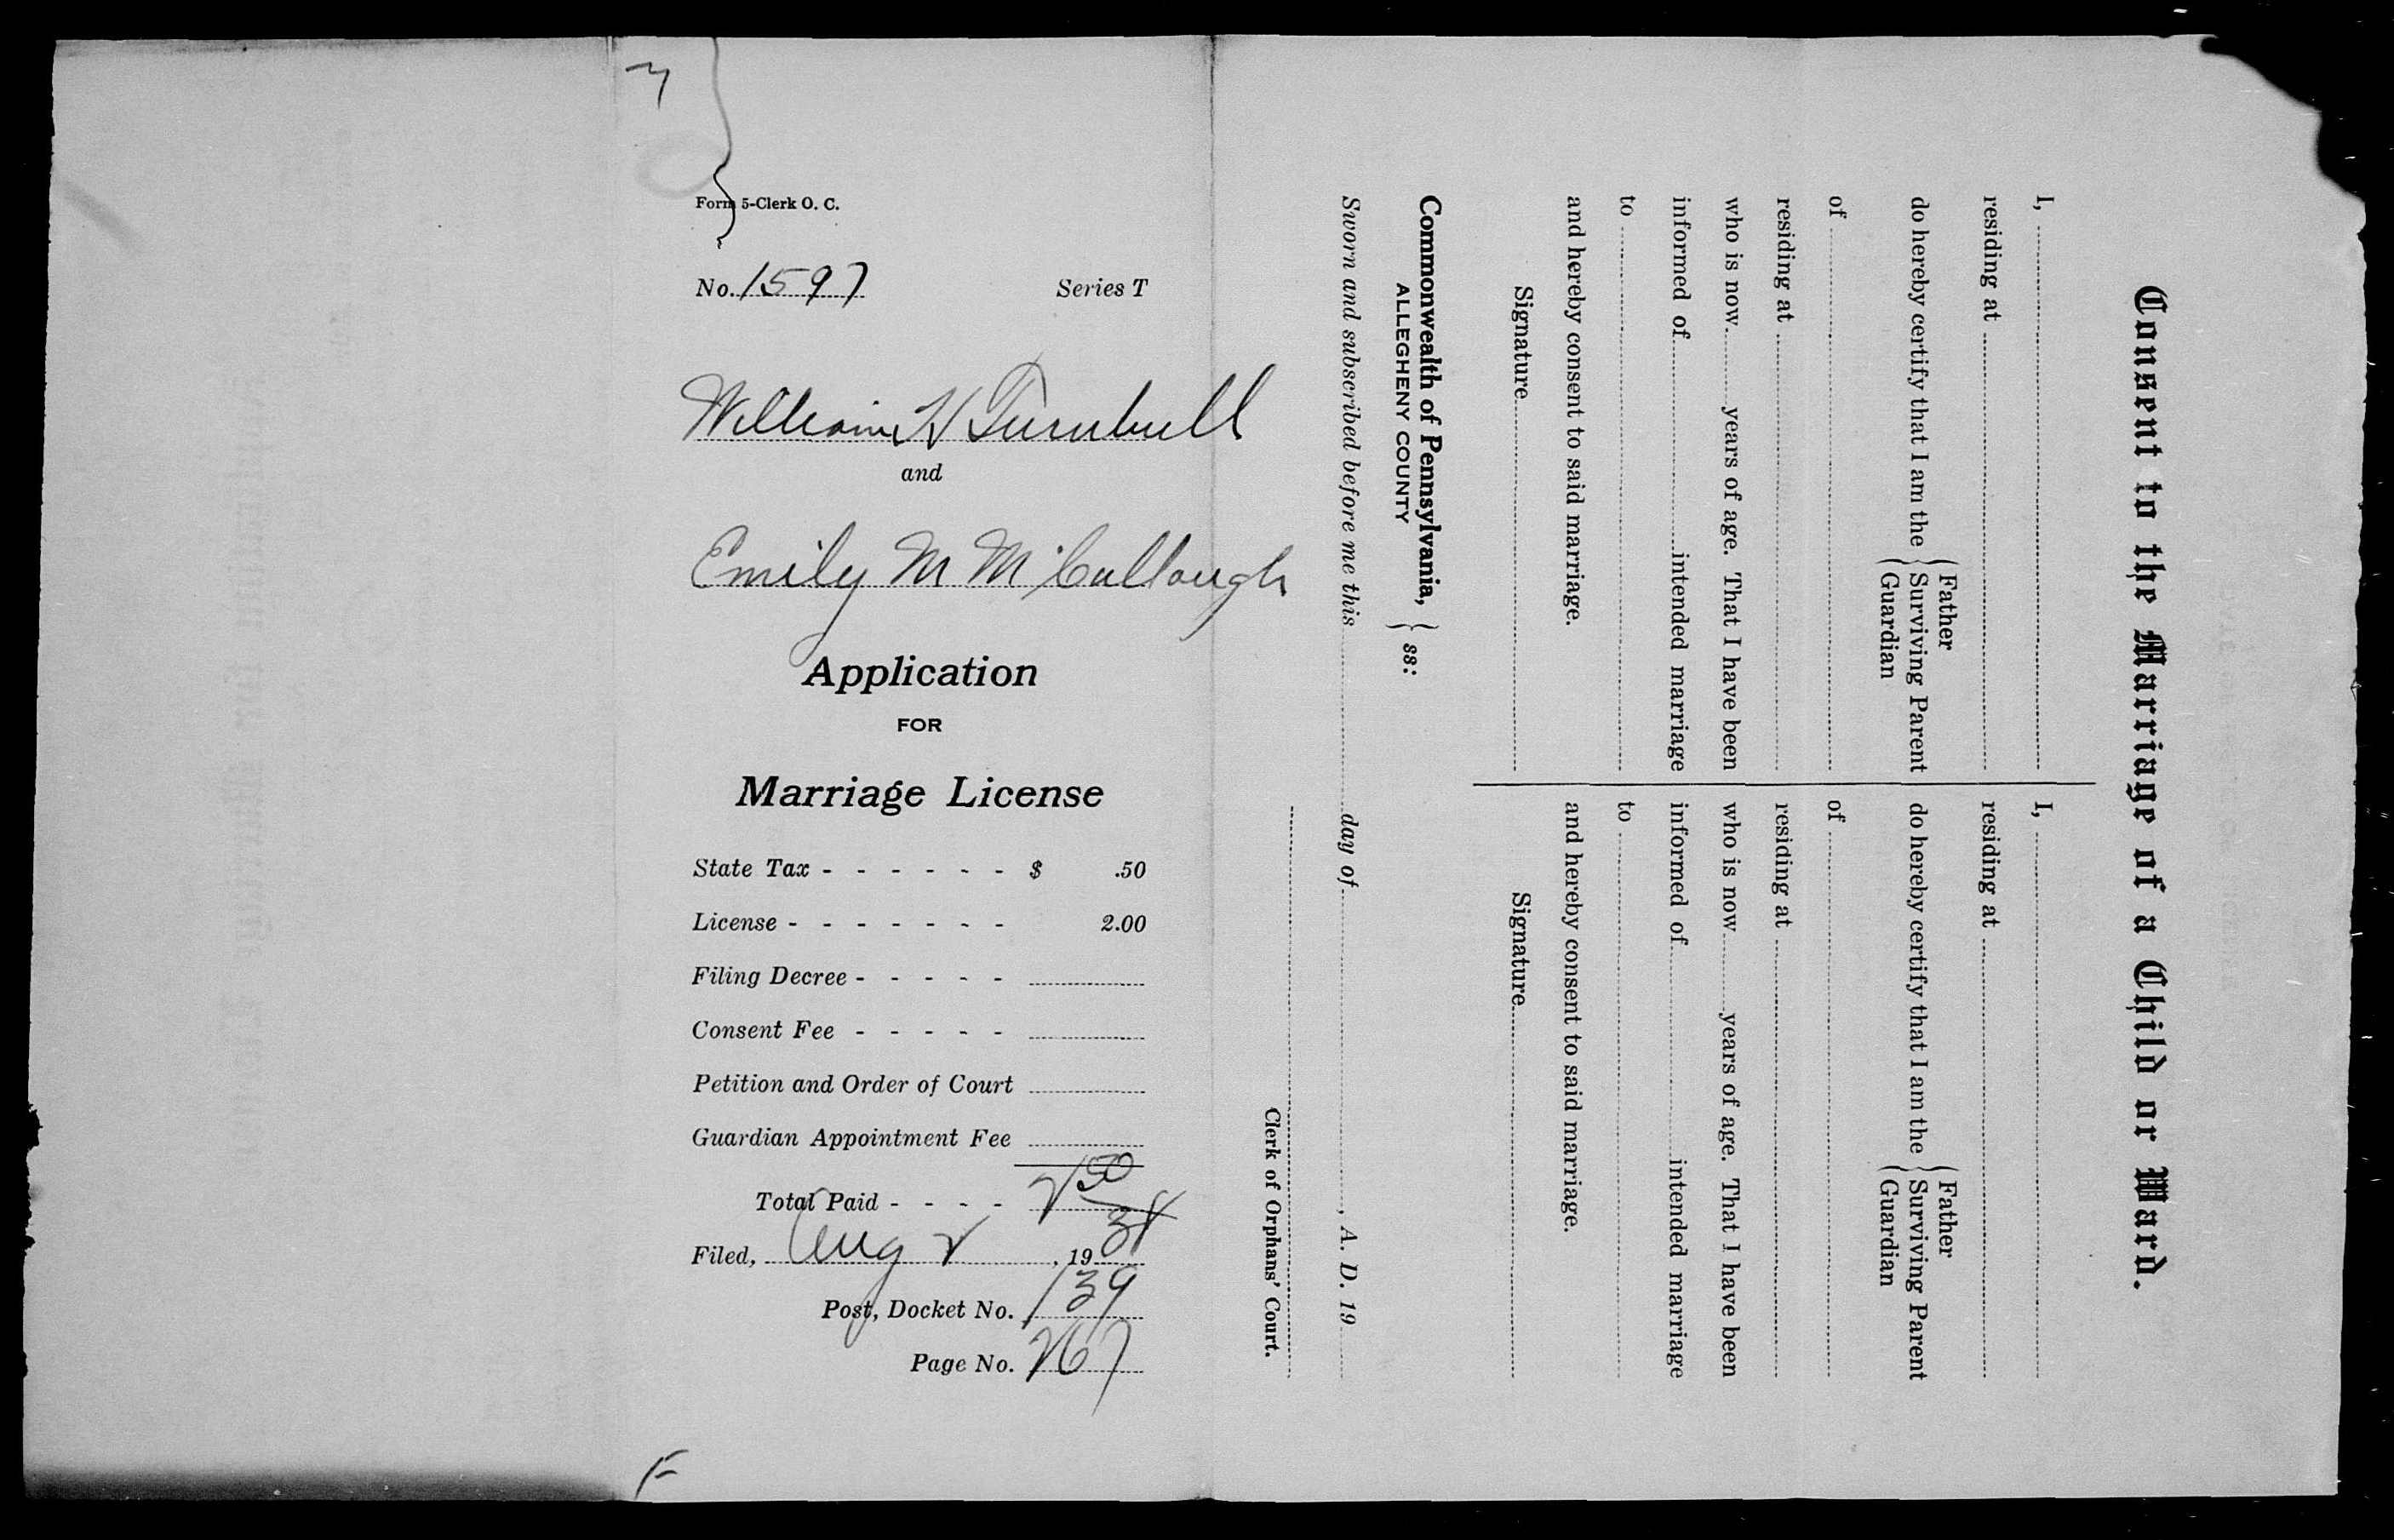 Form 5-Clerk O. C.
No. 1597 Series T
William H Turnbull
and
Emily M McCullough
Application
FOR
Marriage License
State Tax - - - - - - $ .50
License - - - - - - - 2.00
Filing Decree - - - - -
Consent Fee - - - - -
Petition and Order of Court
Guardian Appointment Fee
Total Paid - - - - 2 50
Filed, Aug 2, 1934
Post, Docket No. 139
Page No. 267
F
Consent to the Marriage of a Child or Ward.
I,
residing at
do hereby certify that I am the { Father
Surviving Parent
Guardian
of
residing at
who is now years of age. That I have been
informed of intended marriage
to
and hereby consent to said marriage.
Signature
I,
residing at
do hereby certify that I am the { Father
Surviving Parent
Guardian
of
residing at
who is now years of age. That I have been
informed of intended marriage
to
and hereby consent to said marriage.
Signature
Commonwealth of Pennsylvania, } ss:
ALLEGHENY COUNTY
Sworn and subscribed before me this day of , A. D. 19
Clerk of Orphans' Court.